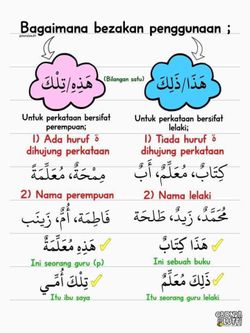 Bagaimana bezakan penggunaan ;
هَذِهِ/تِلْكَ
(Bilangan satu)
هَذَا/ذَلِكَ
Untuk perkataan bersifat
perempuan;
1) Ada huruf ة
dihujung perkataan
مِمْحَةٌ، مُعَلِّمَةٌ
2) Nama perempuan
فَاطِمَة، أُمٌّ، زَيْنَب
هَذِهِ مُعَلِّمَةٌ
Ini seorang guru (p)
تِلْكَ أُمِّي
Itu ibu saya
Untuk perkataan bersifat
lelaki;
1) Tiada huruf ة
dihujung perkataan
كِتَابٌ، مُعَلِّمٌ، أَبٌ
2) Nama lelaki
مُحَمَّدٌ، زَيْدٌ، طَلحَة
هَذَا كِتَابٌ
Ini sebuah buku
ذَلِكَ مُعَلِّمٌ
Itu seorang guru lelaki